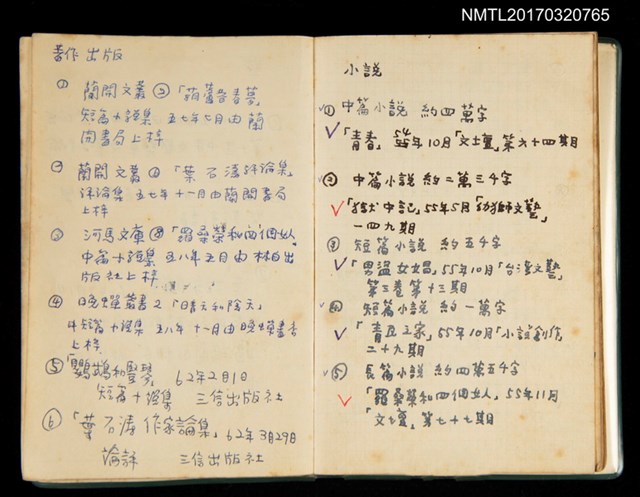 NMTL20170320765
著作出版
① 蘭開文叢② 「葫蘆巷春夢」
短篇小說集 五七年七月由蘭
開書局上梓
② 蘭開文叢① 「葉石濤評論集」
評論集 五七年十一月由蘭開書局
上梓
③ 河馬文庫 「羅桑榮和四個女人」
中篇小說集 五八年五月由林白出
版社上梓
④ 晚蟬叢書2 「晴天和陰天」
短篇小說集 五八年十一月由晚蟬書店
上梓
⑤ 「鸚鵡和豎琴」 62年2月1日
短篇小說集 三信出版社
⑥ 「葉石濤作家論集」 62年3月29日
論評 三信出版社
小說
① 中篇小說 約四萬字
「青春」 54年10月「文壇」第六十四期
② 中篇小說 約二萬三千字
「獄中記」 55年5月「幼獅文藝」
一四九期
③ 短篇小說 約五千字
「男盜女娼」 55年10月「台灣文藝」
第三卷第十三期
④ 短篇小說 約一萬字
「青瓦之家」 55年10月「小說創作」
二十九期
⑤ 長篇小說 約四萬五千字
「羅桑榮和四個女人」, 55年11月
「文壇」第七十七期